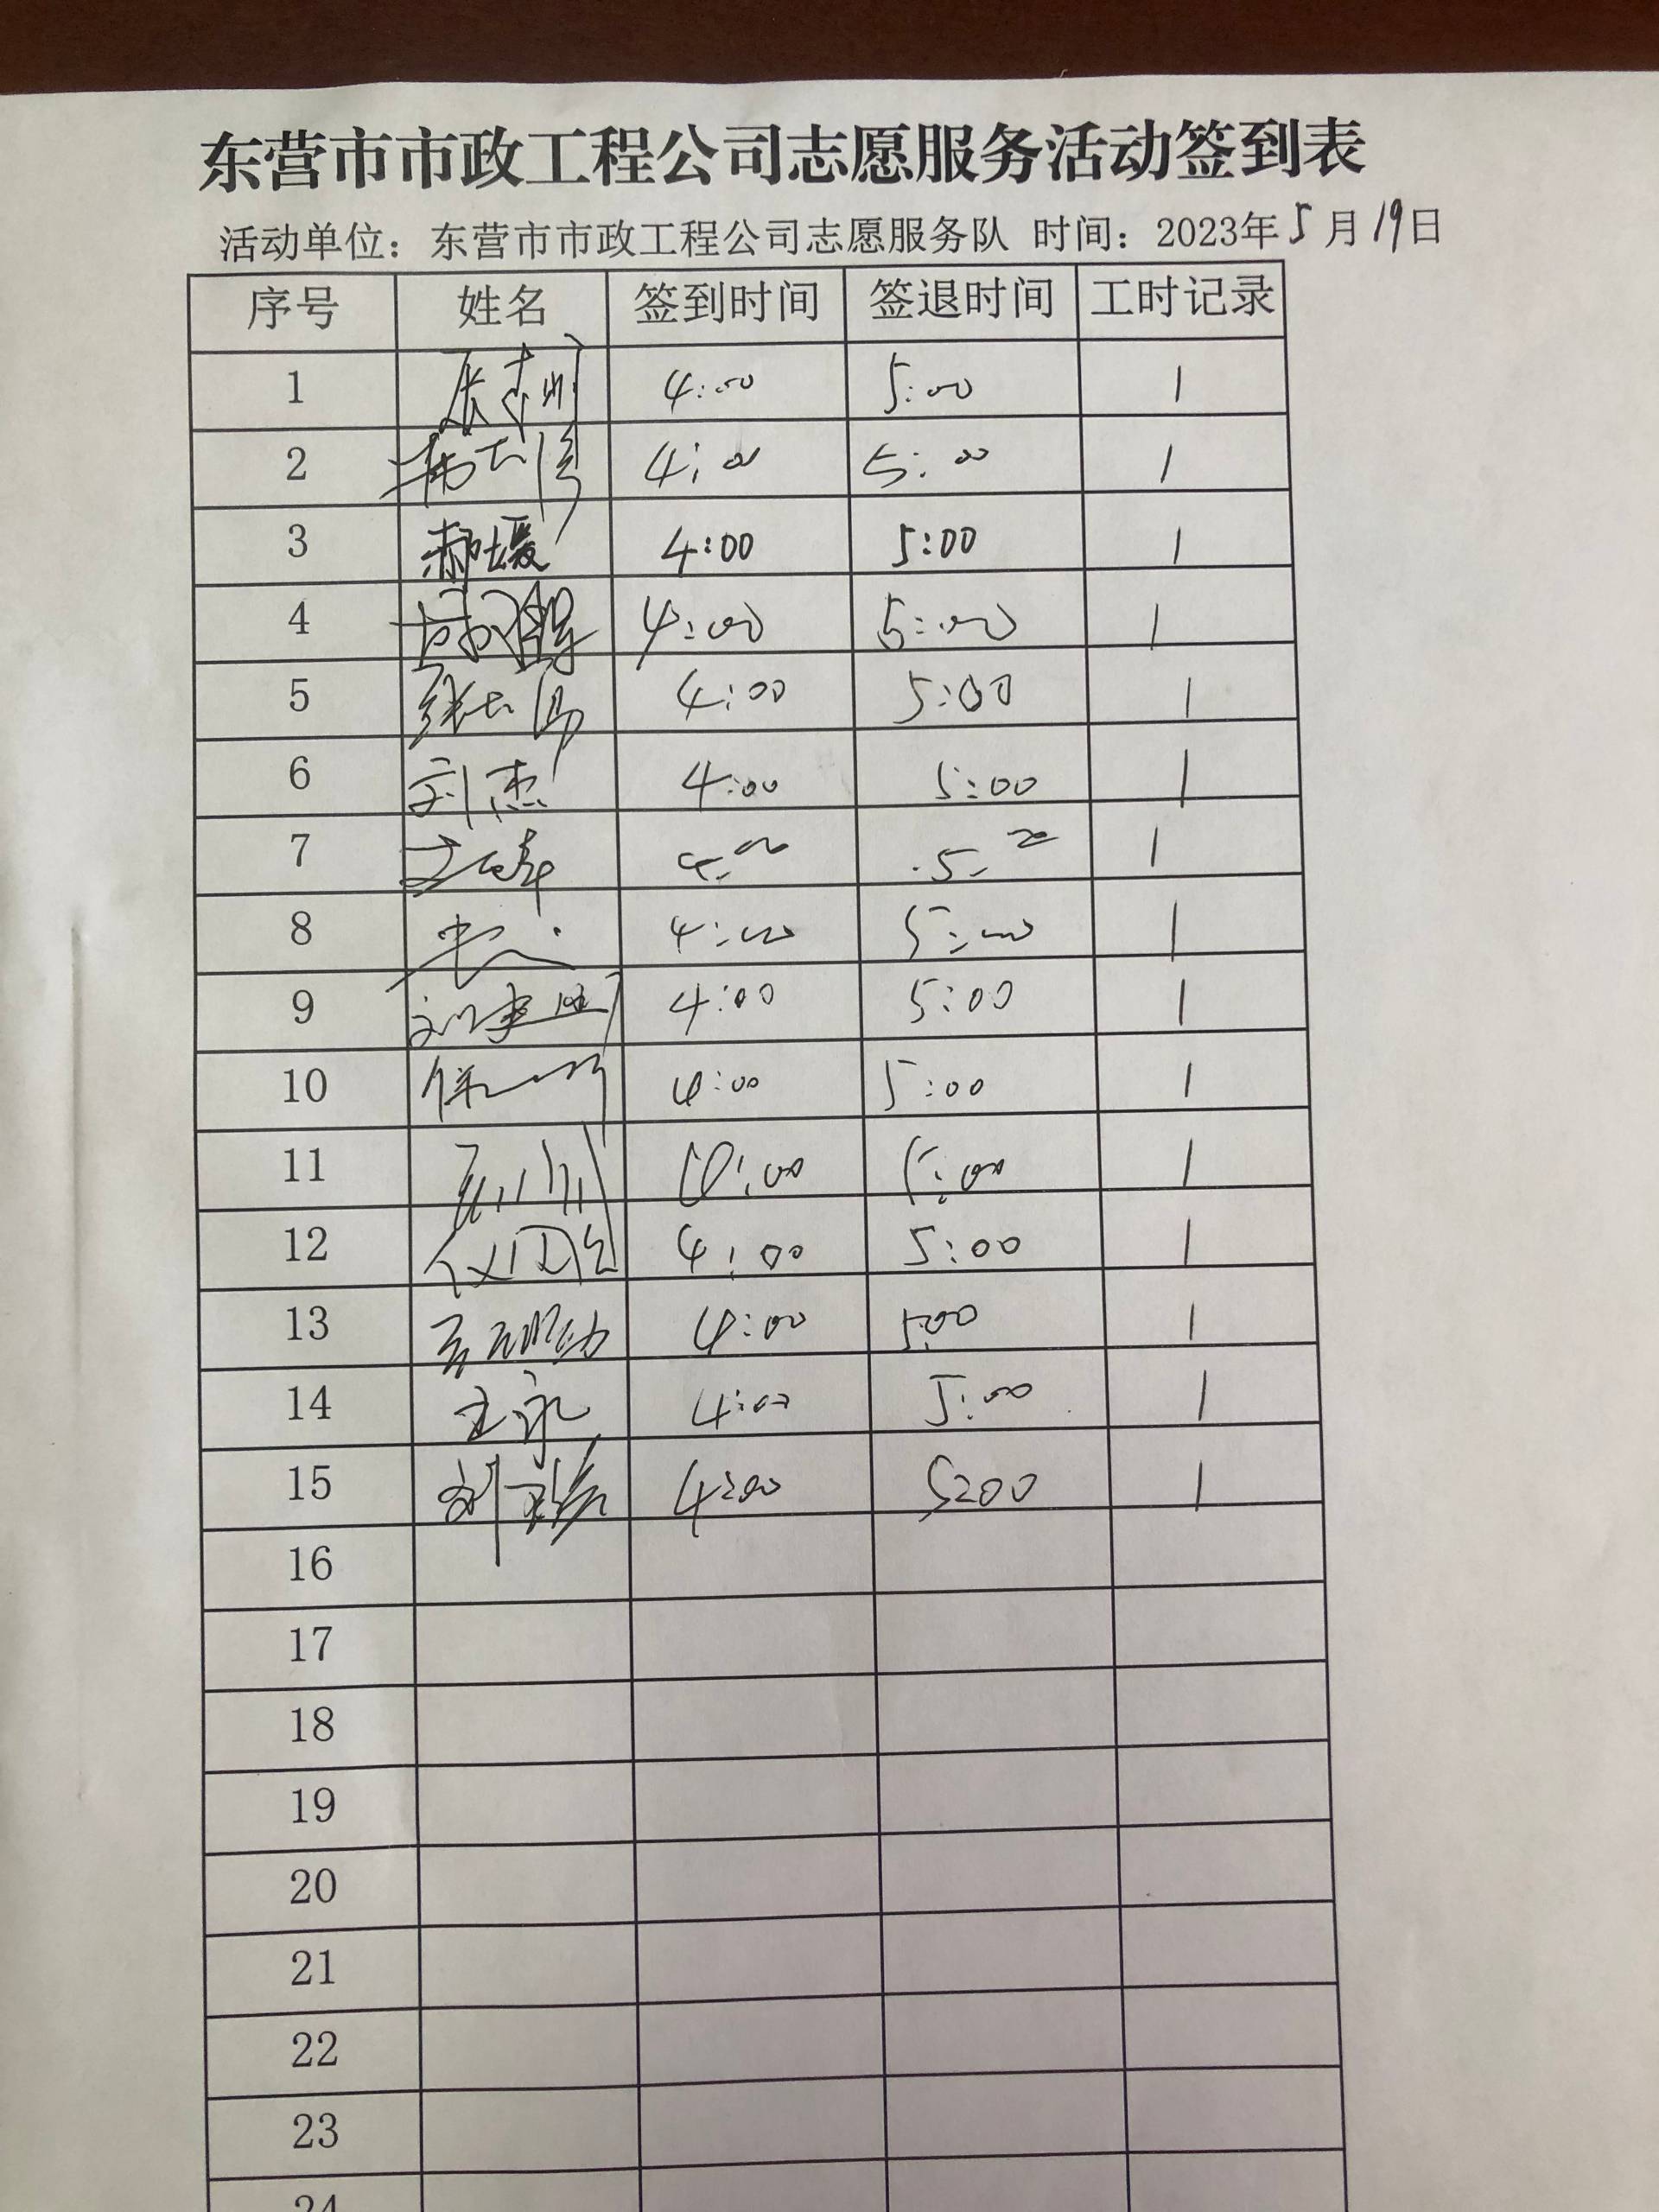 东营市市政工程公司志愿服务活动签到表
活动单位：东营市市政工程公司志愿服务队 时间：2023年5月19日
序号 姓名 签到时间 签退时间 工时记录
1 4:00 5:00 1
2 4:00 5:00 1
3 郝媛 4:00 5:00 1
4 4:00 5:00 1
5 4:00 5:00 1
6 刘杰 4:00 5:00 1
7 4:00 5:00 1
8 4:00 5:00 1
9 4:00 5:00 1
10 4:00 5:00 1
11 5:00 1
12 4:00 5:00 1
13 4:00 5:00 1
14 王永 4:00 5:00 1
15 4:00 5:00 1
16
17
18
19
20
21
22
23
24